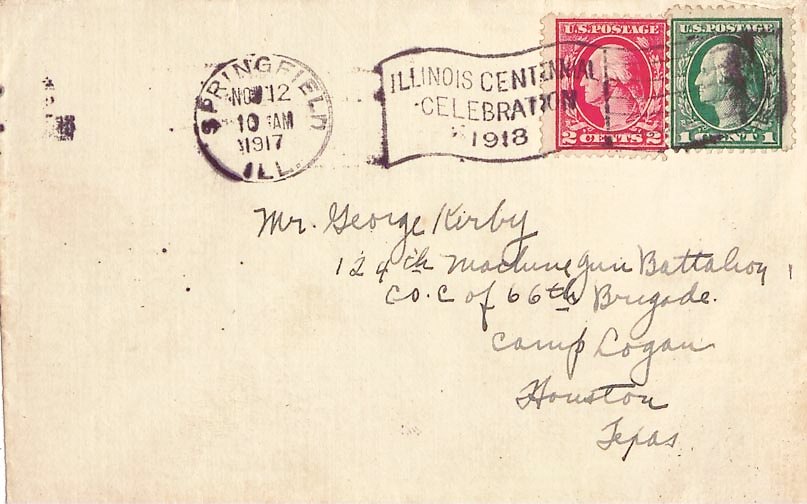 SPRINGFIELD
NOV 12
10 AM
1917
ILL.
ILLINOIS CENTENNIAL
CELEBRATION
1918
U.S. POSTAGE
2 CENTS 2
U.S. POSTAGE
1 CENT 1
Mr. George Kirby
124th Machine Gun Battalion,
CO. C of 66th Brigade.
Camp Logan
Houston
Texas.